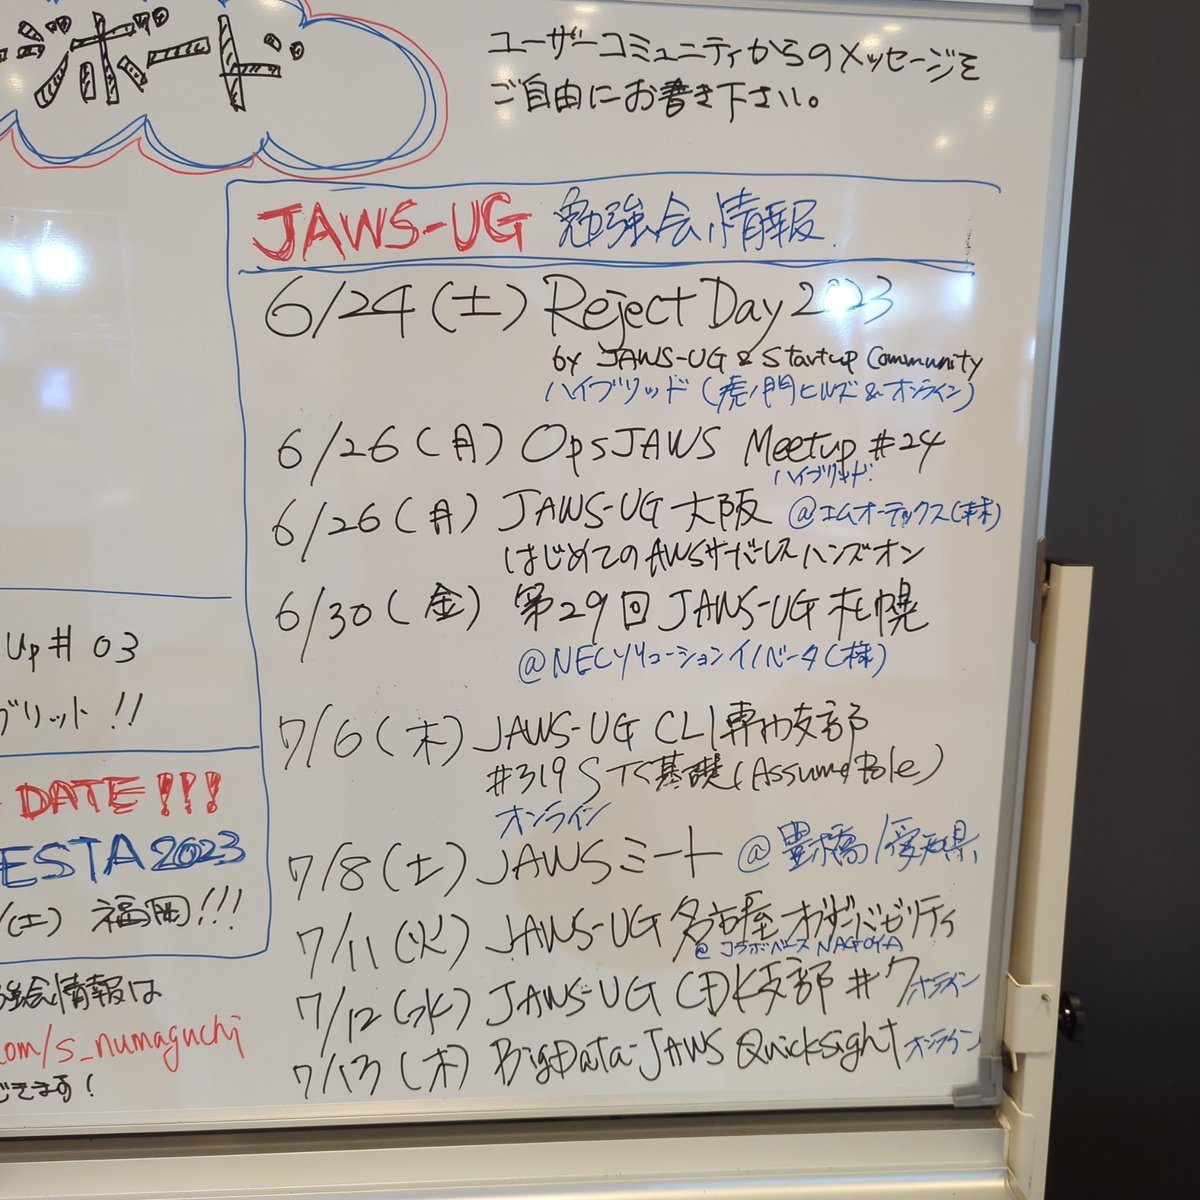 ボード
ユーザーコミュニティからのメッセージを
ご自由にお書き下さい。
JAWS-UG 勉強会情報
6/24(土) Reject Day 2023
by JAWS-UG & Startup Community
ハイブリッド(虎ノ門ヒルズ&オンライン)
6/26(月) OpsJAWS Meetup #24
ハイブリッド
6/26(月) JAWS-UG 大阪 @エムオーテックス(株)
はじめてのAWSサーバーレスハンズオン
6/30(金) 第29回 JAWS-UG 札幌
@NECソリューションイノベータ(様)
7/6(木) JAWS-UG CLI専門支部
#319 STS基礎(AssumeRole)
オンライン
7/8(土) JAWSミート @豊橋/愛知県
7/11(火) JAWS-UG 名古屋 オブザーバビリティ
@コラボベースNAGOYA
7/12(水) JAWS-UG CDK支部 #7 オンライン
7/13(木) BigData-JAWS QuickSight オンライン
Up# 03
ブリット!!
DATE!!!
ESTA2023
/(土) 福岡!!!
強会情報は
com/s_numaguchi
できます!